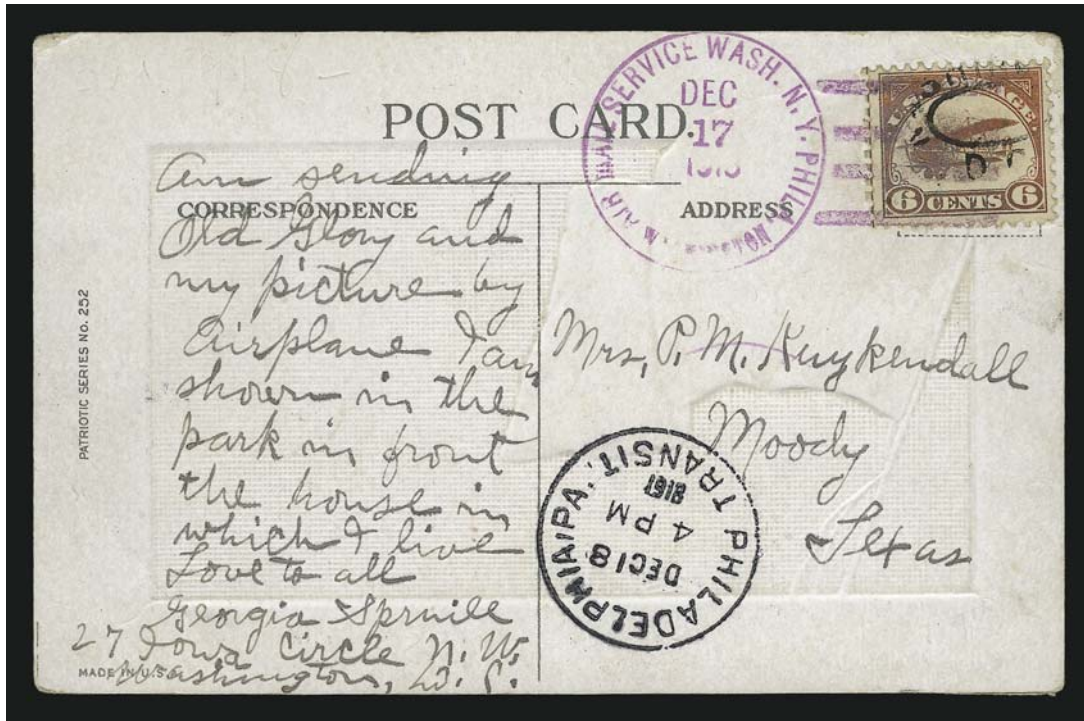 POST CARD.
AIR MAIL SERVICE WASH. N.Y. PHILA.
DEC
17
U.S. POSTAGE.
6 CENTS 6
CORRESPONDENCE
ADDRESS
Am sending
Old Glory and
my picture by
airplane I am
shown in the
park in front
the house in
which I live
Love to all
Georgia Spruill
27 Iowa Circle N.W.
Washington, D.C.
Mrs. P. M. Kuykendall
Moody
Texas
PHILADELPHIA, PA. TRANSIT.
DEC 18
4 PM
1918
PATRIOTIC SERIES No. 252
MADE IN U.S.